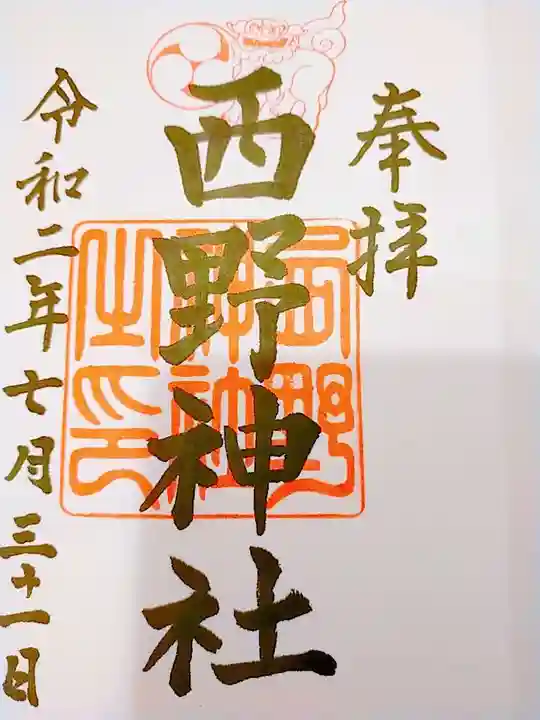 奉拝
西野神社
西野
神社
之印
令和二年七月三十一日